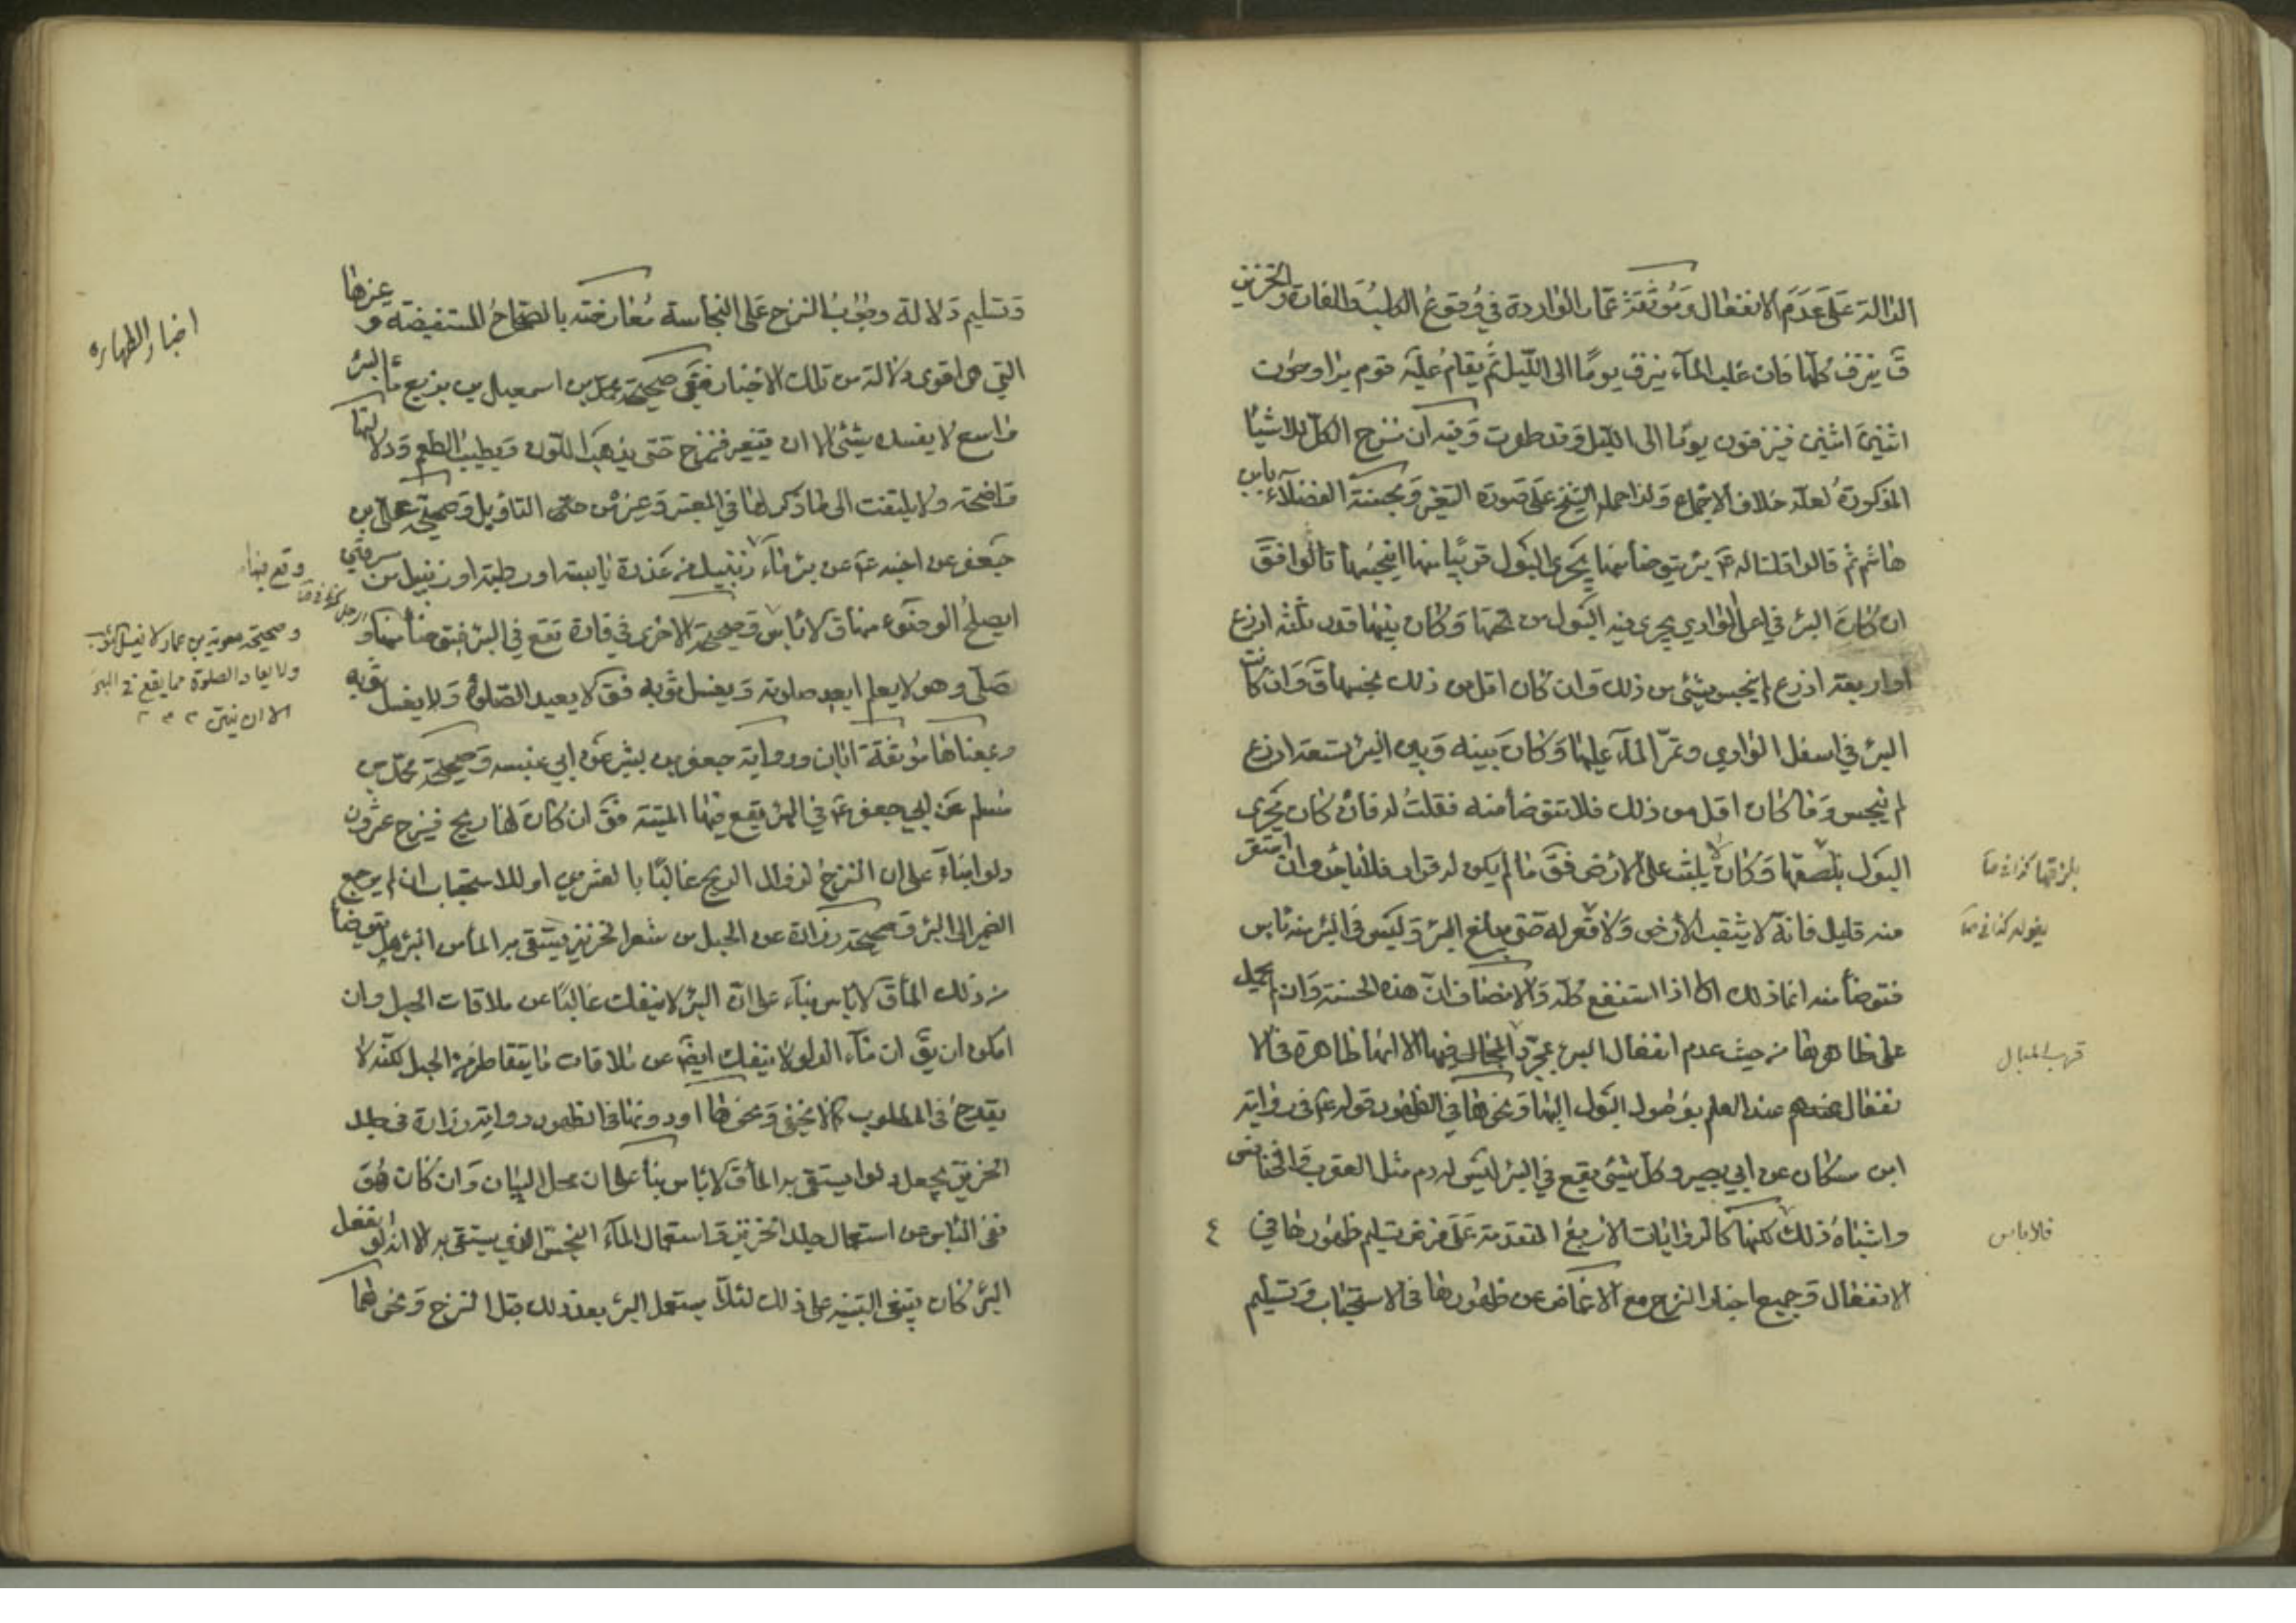 الدالة على عدم الانفعال وموثقة عمار الواردة في وقوع الكلب والفارة والخنزير
ق ينزف كلها فان غلب الماء ينزف يوما الى الليل ثم يقام عليه قوم يتراوحون
اثنين اثنين فينزفون يوما الى الليل وقد طهرت وفيه ان نزح الكل للاشياء
المذكورة لعله خلاف الاجماع ولذا حمله الشيخ على صورة التغير وبحسنة الفضلاء بابن
هاشم ثم قالوا قلنا له بئر يتوضأ منها يجرى البول قريبا منها اينجسها قالوا فق
ان كان البئر في اعلى الوادي يجرى فيه البول من تحتها وكان بينهما قدر ثلثه اذرع
او اربعة اذرع لم ينجس شئ من ذلك وان كان اقل من ذلك نجسها ق وان كانت
البئر في اسفل الوادي وتمر الماء عليها وكان بينه وبين البئر تسعة اذرع
لم ينجس وما كان اقل من ذلك فلا تتوضأ منه فقلت له فان كان يجرى
البول بلصقها وكان لا يلبث على الارض فق ما لم يكن له قرار فلا باس وان استقر
منه قليل فانه لا يثقب الارض ولا قعر له حتى يبلغ البئر وليس في البئر منه باس
فتوضأ منه انما ذلك اذا استنقع كله والانصاف ان هذه الحسنة وان لم يحمل
على ظاهرها من حيث عدم انفعال البئر بمجرد فيها الا انها ظاهرة في الا
نفعال عندهم عند العلم بوصول البول اليها ونحوها في الظهور قوله ع في رواية
ابن مسكان عن ابي بصير وكل شئ يقع في البئر ليس له دم مثل العقرب والخنافس
واشباه ذلك لكنها كالروايات الاربع المتقدمة على فرض تسليم ظهورها في
الانفعال وجميع اخبار النزح مع الاغماض عن ظهورها في الاستحباب وتسليم
بلزقها كذا في
يغوله كذا في
قرب المبال
فلا باس
٤
وتسليم دلالة وجوب النزح على النجاسة معارضة بالصحاح المستفيضة وغيرها
التي هي اقوى دلالة من تلك الاخبار ففي صحيحة محمد بن اسمعيل بن بزيع ماء البئر
واسع لا يفسده شئ الا ان يتغير فينزح حتى يذهب اللون ويطيب الطعم ودلالتها
واضحة ولا يلتفت الى ما ذكر لها في المعتبر وغيره من التاويل وصحيحة على بن
جعفر عن اخيه ع عن بئر ماء زنبيل من عذرة يابسة او رطبة او زنبيل من سرقين
ايصلح الوضوء منها ق لا باس وصحيحة الاخرى في فارة تقع في البئر فيتوضأ منها و
صلى وهو لا يعلم ايعيد صلوته ويغسل ثوبه فق لا يعيد الصلوة ولا يغسل ثوبه
وبمعناها موثقة ابان ورواية جعفر بن بشير عن ابي عنبسه وصحيحة محمد بن
مسلم عن ابي جعفر ع في البئر يقع فيها الميتة فق ان كان لها ريح فينزح عشرون
دلوا بناء على ان النزح لزوال الريح غالبا بالعشرين او للاستحباب ان لم يرجع
الضمير الى البئر وصحيحة زرارة عن الحبل من شعر الخنزير يستقى به الماء من البئر هل يتوضأ
من ذلك الماء ق لا باس بناء على ان البئر لا ينفك غالبا عن ملاقات الحبل وان
امكن ان يق ان ماء الدلو لا ينفك ايضا عن ملاقات ما يتقاطر من الحبل لكنه لا
يقدح في المطلوب كما لا يخفى ونحوها او دونها في الظهور رواية زرارة في جلد
الخنزير يجعل دلوا يستقى به الماء ق لا باس بناء على ان محل البيان وان كانت هو
نفى الباس عن استعمال جلد الخنزير واستعمال الماء النجس الذي يستقى به الا انه لو انفعل
البئر كان ينبغي التنبيه على ذلك لئلا يستعمل البئر بعد ذلك قبل النزح ونحوهما
اخبار الطهارة
وقع فيها
وصحيحة معوية بن عمار لا يغسل الثوب
ولا يعاد الصلوة مما يقع في البئر
الا ان ينتن